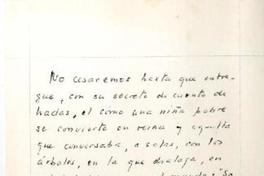 No cesaremos hasta que entre-
gue, con su secreto de cuento de
hadas, el cómo una niña pobre
se convierte en reina y aquella
que conversaba, a solas, con los
árboles, en la que dialoga, en